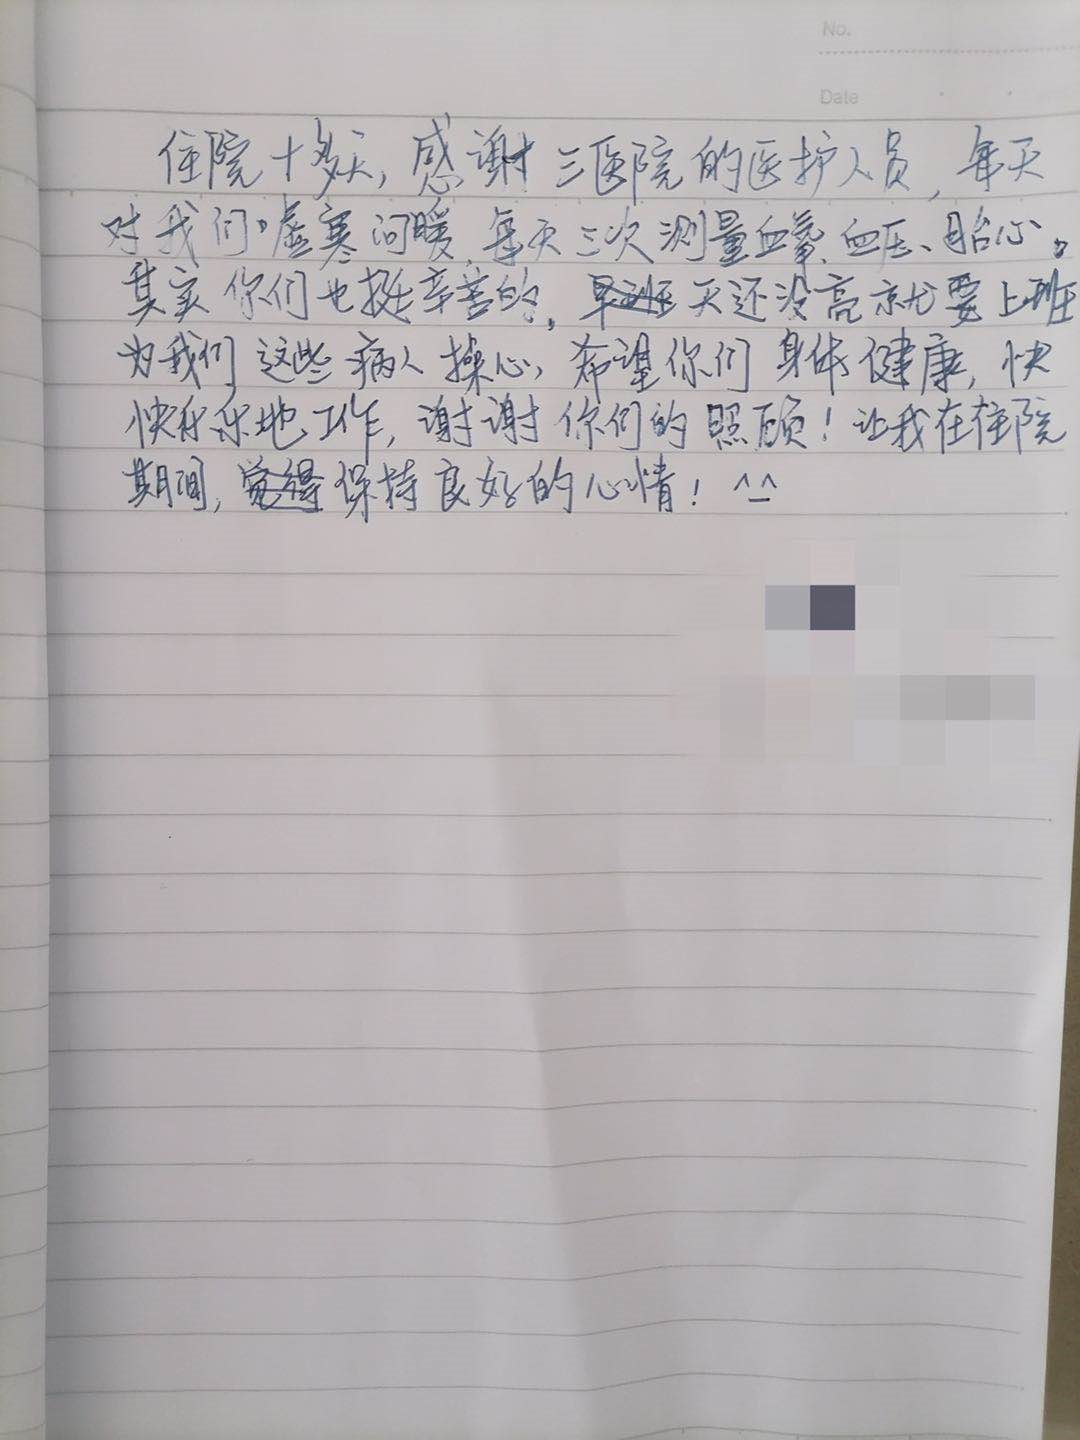 No.
Date
住院十多天,感谢三医院的医护人员,每天
对我们嘘寒问暖,每天三次测量血氧、血压、胎心。
其实你们也挺辛苦的,天还没亮就要上班
为我们这些病人操心,希望你们身体健康,快
快乐乐地工作,谢谢你们的照顾!让我在住院
期间,保持良好的心情! ^_^